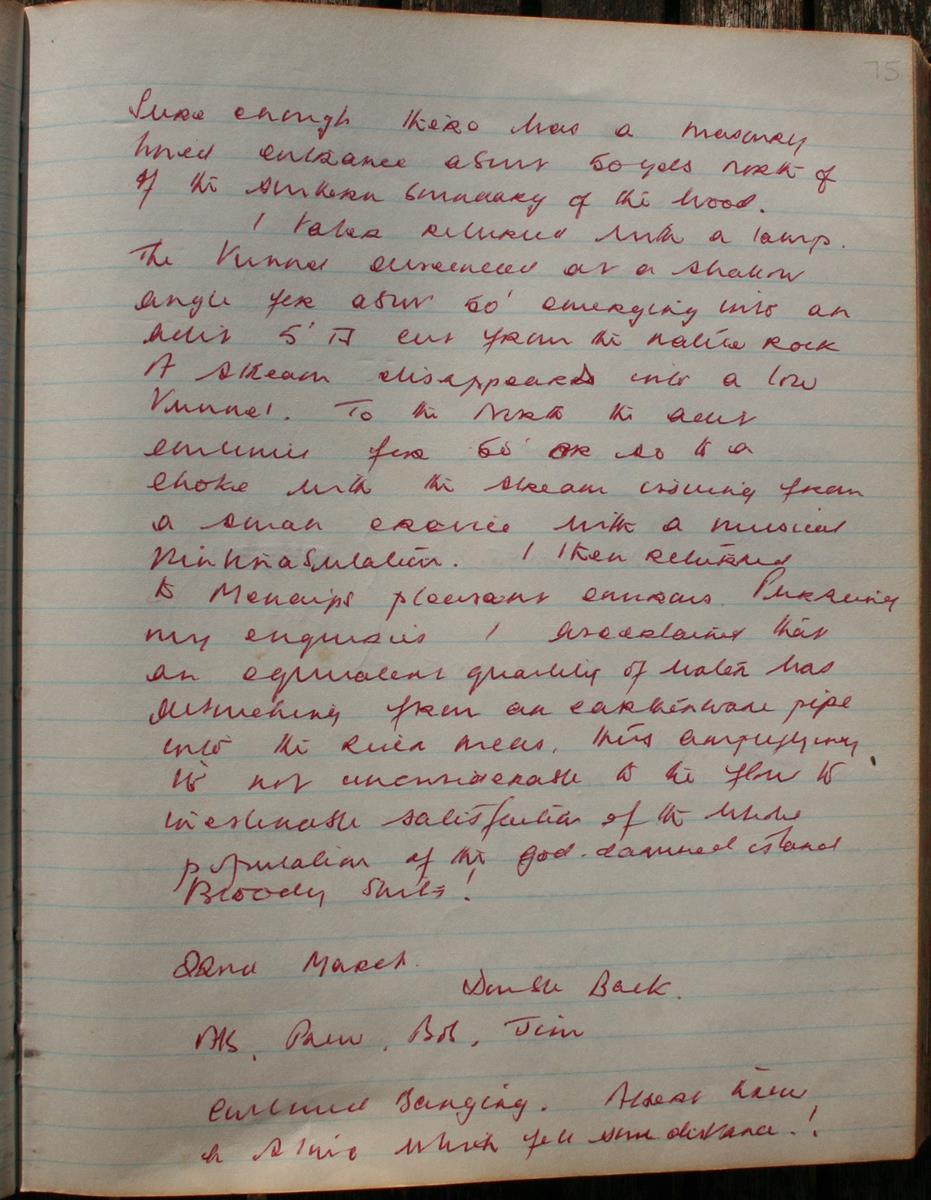 75
Sure enough there was a masonry
lined entrance about 50 yds north of
of the southern boundary of the wood.
I later returned with a lamp.
The tunnel descended at a shallow
angle for about 50' emerging into an
adit 5' cut from the native rock
A stream disappeared into a low
tunnel. To the North the adit
continued for 50' or so to a
choke with the stream issuing from
a small crevice with a musical
tintinabulation. I then returned
to Mendips pleasant environs. Pursuing
my enquiries I ascertained that
an equivalent quantity of water was
debouching from an earthenware pipe
into the river meads, thus amplifying
to not unconsiderable to the flow to
inestimable satisfaction of the whole
population of the god-damned island
Bloody Shits!
22nd March.
Double Back.
Alb, Prew, Bob, Jim
Continued Banging. Albert threw
a stone which fell some distance.!